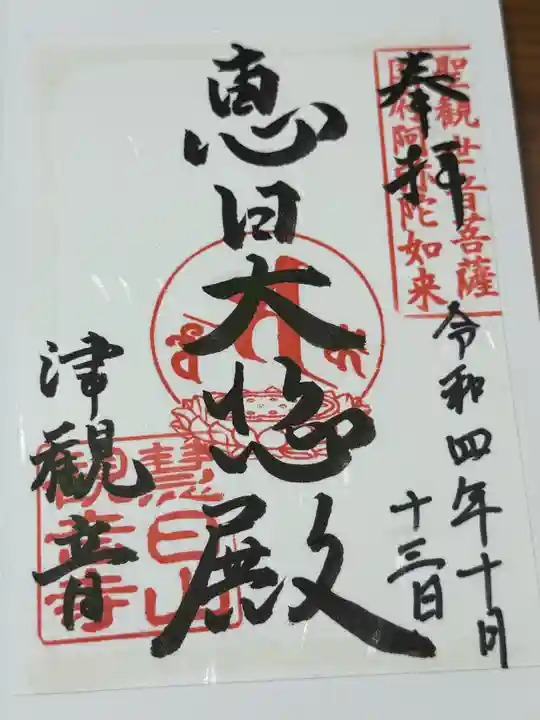 奉拝
聖観世音菩薩
国府阿弥陀如来
令和四年十月
十三日
恵日大悲殿
津観音
慧日山
観音寺